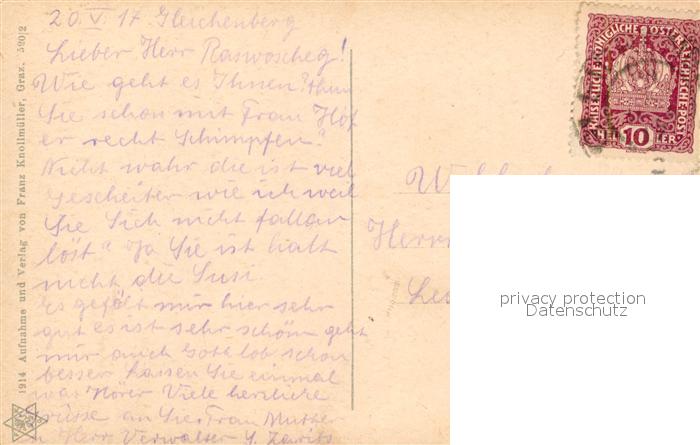 20. V. 17 Gleichenberg
Lieber Herr Raswoscheg!
Wie geht es Ihnen? thun
Sie schon mit Frau Höf
er recht Schimpfen?
Nicht wahr die ist viel
Gescheiter wie ich weil
Sie Sich nicht fallen
löst? Ja Sie ist halt
nicht die Susi.
Es gefält mir hier sehr
gut es ist sehr schön geht
mir auch Gott lob schon
besser Lassen Sie einmal
was Hören Viele herzliche
Grüsse an Sie Frau Mutter
u Herr Verwalter
1914 Aufnahme und Verlag von Franz Knollmüller, Graz. 520/2
KAISERLICHE KÖNIGLICHE ÖSTERREICHISCHE POST
10 HELLER
Herrn
privacy protection
Datenschutz